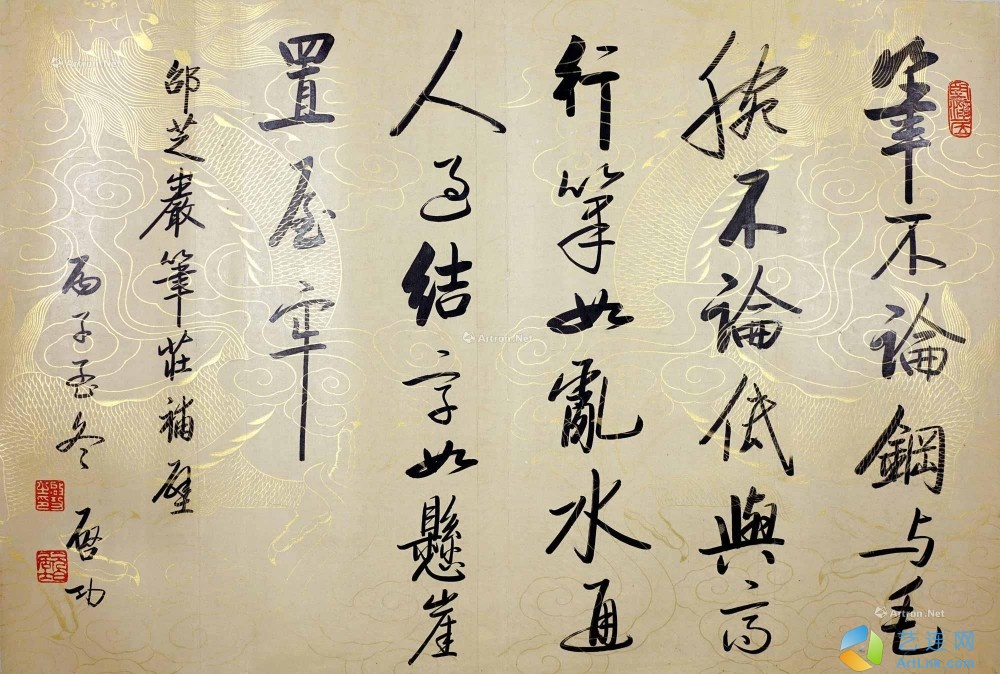 筆不論鋼与毛
腕不論低與高
行筆如亂水通
人過結字如懸崖
置屋牢
邵芝巖筆莊補壁
丙子孟冬 啓功
Artron.Net
Artron.Net
Artron.Net
艺连网
ArtLnk.com